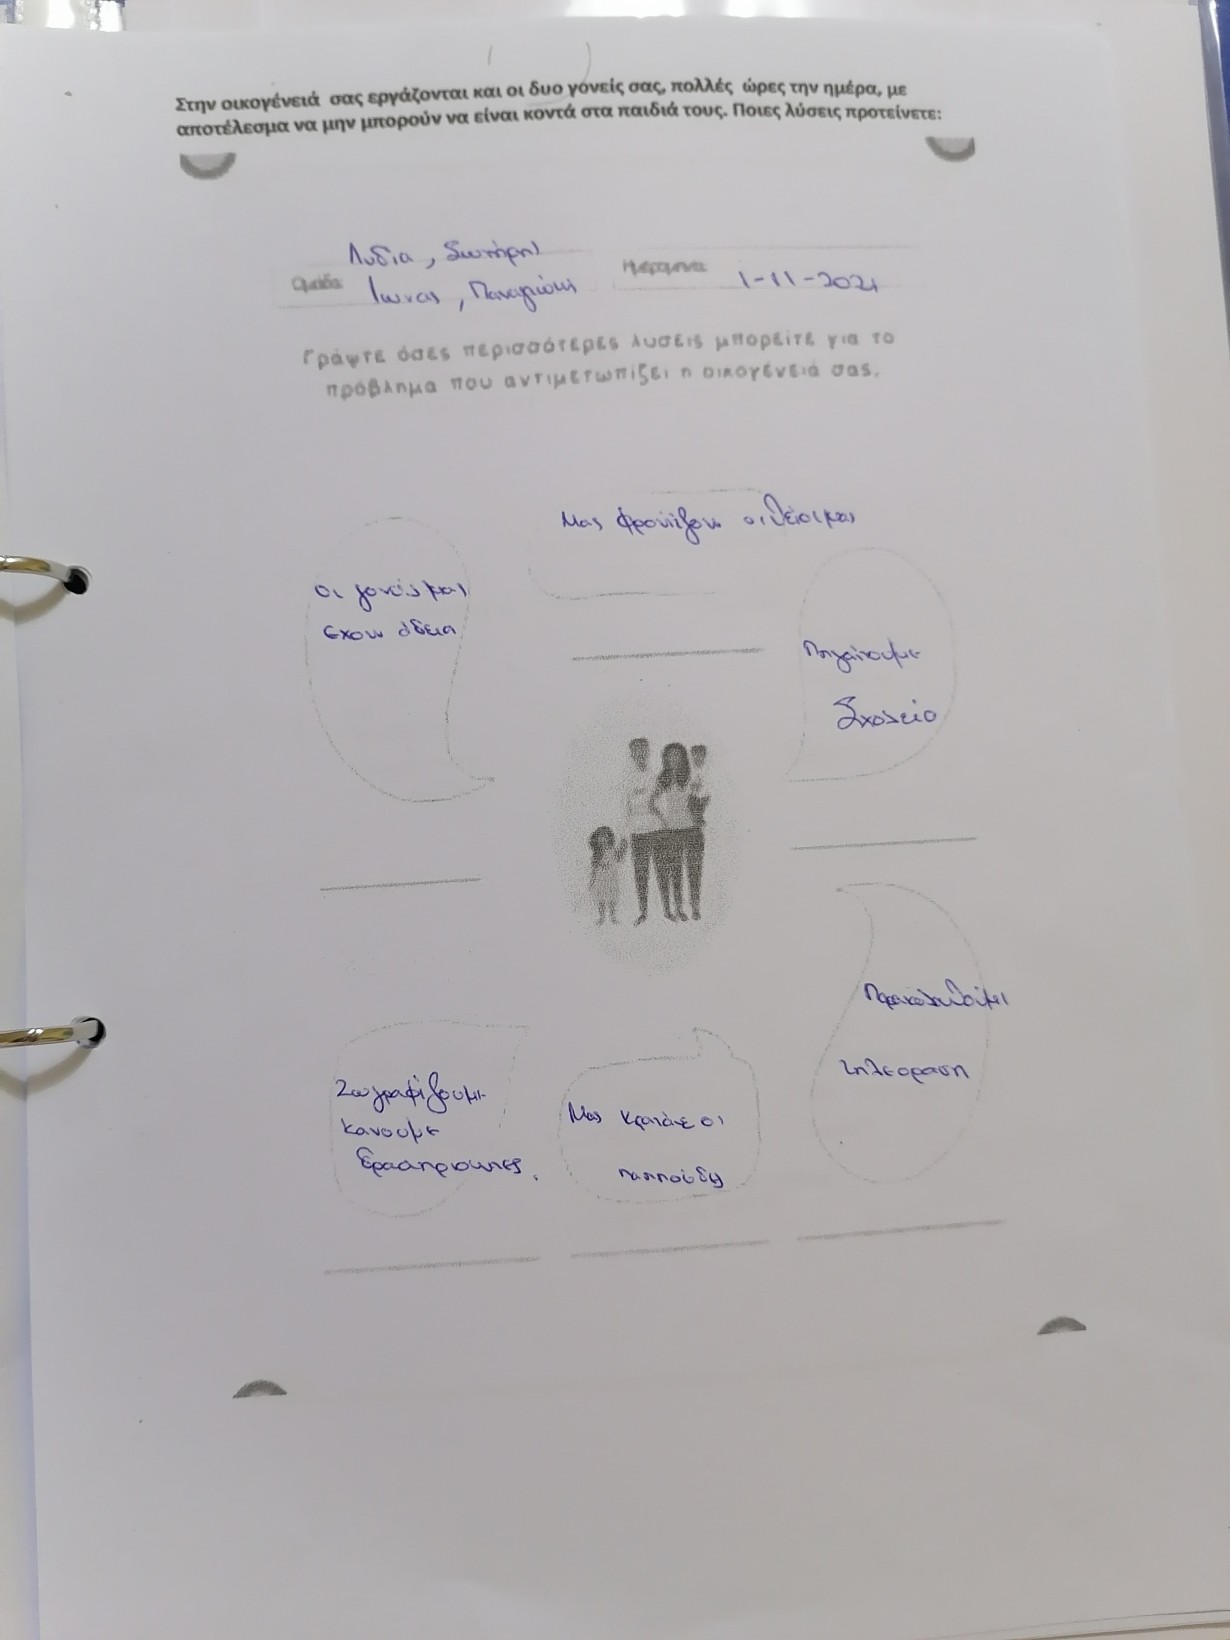 Στην οικογένειά σας εργάζονται και οι δυο γονείς σας, πολλές ώρες την ημέρα, με
αποτέλεσμα να μην μπορούν να είναι κοντά στα παιδιά τους. Ποιες λύσεις προτείνετε:
Λυδία, Σωτήρης
Ομάδα: Ίωνας, Παναγιώτης
Ημερομηνία: 1-11-2021
Γράψτε όσες περισσότερες λύσεις μπορείτε για το
πρόβλημα που αντιμετωπίζει η οικογένειά σας.
Μας φροντίζουν οι θείοι μας
οι γονείς μας
έχουν άδεια
Πηγαίνουμε
Σχολείο
Παρακολουθούμε
τηλεόραση
Ζωγραφίζουμε
κάνουμε
δραστηριότητες.
Μας κρατάνε οι
παππούδες